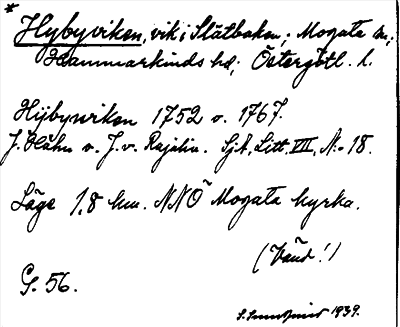 * Hybyviken, vik i Slätbaken; Mogata sn;
Hammarkinds hd; Östergötl. l.
Hÿbywiken 1752 o. 1767.
J. Hahn o. J. v. Rajalin. Sjk, Litt. VII, No 18.
Läge 1,8 km. NNÖ Mogata kyrka.
(Vänd!)
G. 56.
1939.